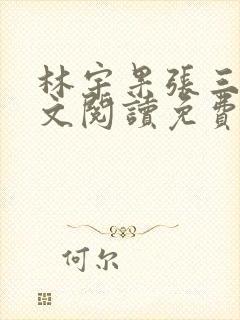 林宇杲张三
文閱讀免費
何尔